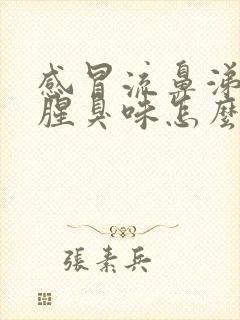 感冒流鼻涕
腥臭味怎麼
張素兵